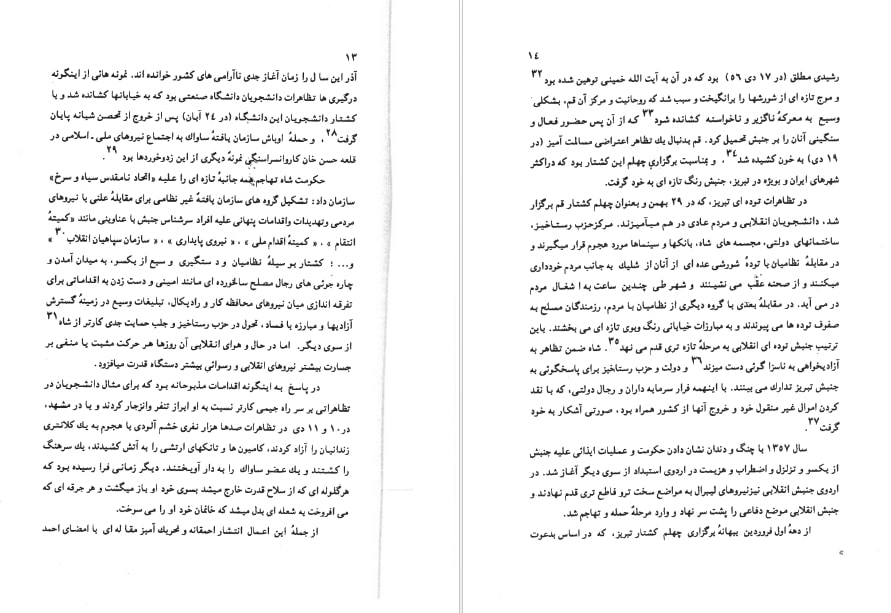 ۱۳
آذر این سال را زمان آغاز جدی ناآرامی های کشور خوانده اند. نمونه هائی از اینگونه
درگیری ها تظاهرات دانشجویان دانشگاه صنعتی بود که به خیابانها کشانده شد و یا
کشتار دانشجویان این دانشگاه (در ۲۴ آبان) پس از خروج از تحصن شبانه پایان
گرفت۲۸، و حملهٔ اوباش سازمان یافتهٔ ساواك به اجتماع نیروهای ملی ـ اسلامی در
قلعه حسن خان کاروانسراسنگی نمونهٔ دیگری از این زدوخوردها بود ۲۹.
حکومت شاه تهاجم همه جانبهٔ تازه ای را علیه «اتحاد نامقدس سیاه و سرخ»
سازمان داد: تشکیل گروه های سازمان یافتهٔ غیر نظامی برای مقابلهٔ علنی با نیروهای
مردمی وتهدیدات واقدامات پنهانی علیه افراد سرشناس جنبش با عناوینی مانند «کمیتهٔ
انتقام » ، « کمیتهٔ اقدام ملی » ، « نیروی پایداری » ، « سازمان سپاهیان انقلاب ۳۰»
و... ؛ کشتار بوسیلهٔ نظامیان و دستگیری وسیع از یکسو، به میدان آمدن و
چاره جوئی های رجال مصلح سالخورده ای مانند امینی و دست زدن به اقداماتی برای
تفرقه اندازی میان نیروهای محافظه کار و رادیکال، تبلیغات وسیع در زمینهٔ گسترش
آزادیها و مبارزه با فساد، تحول در حزب رستاخیز و جلب حمایت جدی کارتر از شاه ۳۱
از سوی دیگر. اما در حال و هوای انقلابی آن روزها هر حرکت مثبت یا منفی بر
جسارت بیشتر نیروهای انقلابی و رسوائی بیشتر دستگاه قدرت میافزود.
در پاسخ به اینگونه اقدامات مذبوحانه بود که برای مثال دانشجویان در
تظاهراتی بر سر راه جیمی کارتر نسبت به او ابراز تنفر وانزجار کردند و یا در مشهد،
در۱۰ و ۱۱ دی در تظاهرات صدها هزار نفری خشم آلودی با هجوم به یك کلانتری
زندانیان را آزاد کردند، کامیون ها و تانکهای ارتشی را به آتش کشیدند، یك سرهنگ
را کشتند و یك عضو ساواك را به دار آویختند. دیگر زمانی فرا رسیده بود که
هرگلوله ای که از سلاح قدرت خارج میشد بسوی خود او باز میگشت و هر جرقه ای که
می افروخت به شعله ای بدل میشد که خانمان خود او را می سوخت.
از جملهٔ این اعمال انتشار احمقانه و تحریك آمیز مقاله ای با امضای احمد
۱٤
رشیدی مطلق (در ۱۷ دی ۵۶) بود که در آن به آیت الله خمینی توهین شده بود ۳۲
و موج تازه ای از شورشها را برانگیخت و سبب شد که روحانیت و مرکز آن قم، بشکلی
وسیع به معرکهٔ ناگزیر و ناخواسته کشانده شود۳۳ که از آن پس حضور فعال و
سنگینی آنان را بر جنبش تحمیل کرد. قم بدنبال یك تظاهر اعتراضی مسالمت آمیز (در
۱۹ دی) به خون کشیده شد۳۴، و بمناسبت برگزاری چهلم این کشتار بود که دراکثر
شهرهای ایران و بویژه در تبریز، جنبش رنگ تازه ای به خود گرفت.
در تظاهرات توده ای تبریز، که در ۲۹ بهمن و بعنوان چهلم کشتار قم برگزار
شد، دانشجویان انقلابی و مردم عادی در هم میآمیزند. مرکزحزب رستاخیز،
ساختمانهای دولتی، مجسمه های شاه، بانکها و سینماها مورد هجوم قرار میگیرند و
در مقابلهٔ نظامیان با تودهٔ شورشی عده ای از آنان از شلیك به جانب مردم خودداری
میکنند و از صحنه عقب می نشینند و شهر طی چندین ساعت به اشغال مردم
در می آید. در مقابلهٔ بعدی با گروه دیگری از نظامیان با مردم، رزمندگان مسلح به
صفوف توده ها می پیوندند و به مبارزات خیابانی رنگ وبوی تازه ای می بخشند. باین
ترتیب جنبش توده ای انقلابی به مرحلهٔ تازه تری قدم می نهد۳۵. شاه ضمن تظاهر به
آزادیخواهی به ناسزا گوئی دست میزند۳۶ و دولت و حزب رستاخیز برای پاسخگوئی به
جنبش تبریز تدارك می بینند. با اینهمه فرار سرمایه داران و رجال دولتی، که با نقد
کردن اموال غیر منقول خود و خروج آنها از کشور همراه بود، صورتی آشکار به خود
گرفت۳۷.
سال ۱۳۵۷ با چنگ و دندان نشان دادن حکومت و عملیات ایذائی علیه جنبش
از یکسو و تزلزل و اضطراب و هزیمت در اردوی استبداد از سوی دیگر آغاز شد. در
اردوی جنبش انقلابی نیزنیروهای لیبرال به مواضع سخت ترو قاطع تری قدم نهادند و
جنبش انقلابی موضع دفاعی را پشت سر نهاد و وارد مرحلهٔ حمله و تهاجم شد.
از دههٔ اول فروردین ببهانهٔ برگزاری چهلم کشتار تبریز، که در اساس بدعوت